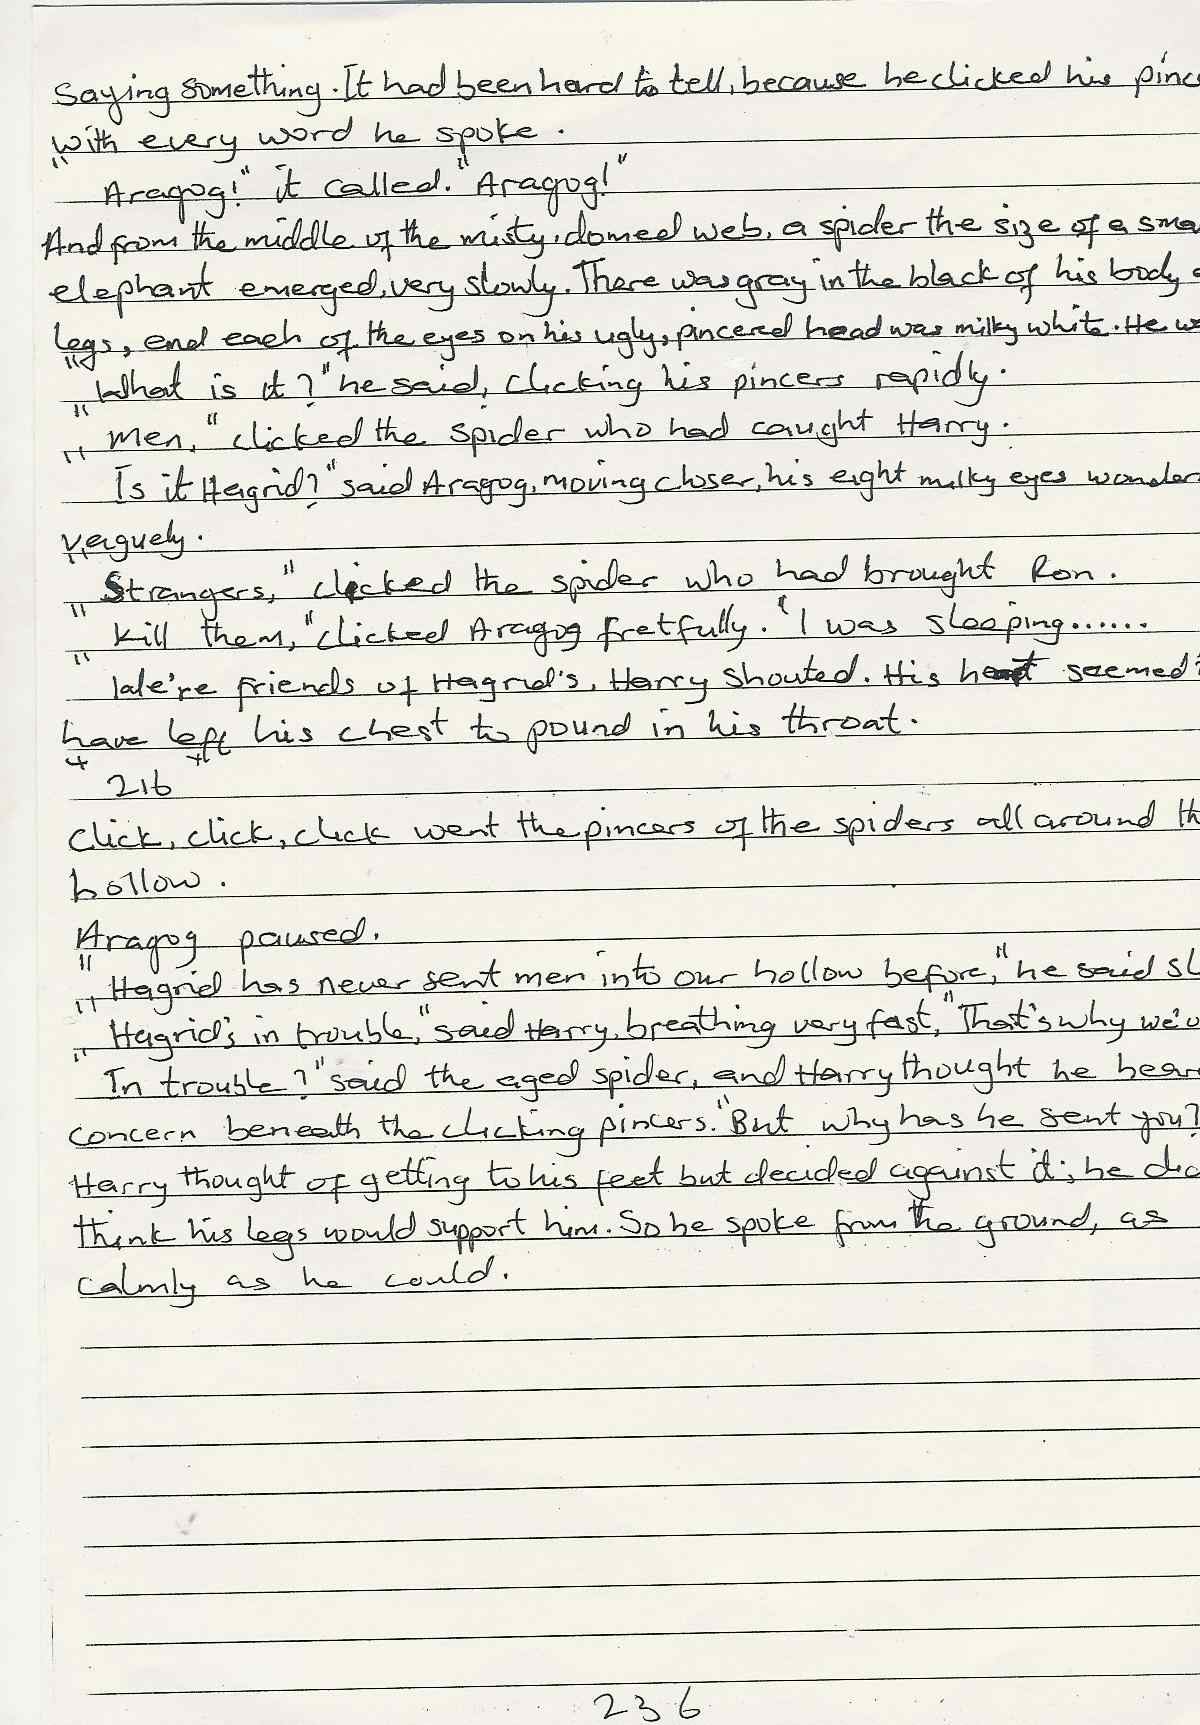 Saying something. It had been hard to tell, because he clicked his pinc
with every word he spoke.
"Aragog!" it called. "Aragog!"
And from the middle of the misty, domed web, a spider the size of a sma
elephant emerged, very slowly. There was gray in the black of his body a
legs, end each of the eyes on his ugly, pincered head was milky white. He w
"What is it?" he said, clicking his pincers rapidly.
"men," clicked the spider who had caught Harry.
"Is it Hagrid?" said Aragog, moving closer, his eight milky eyes wonder
vaguely.
"Strangers," clicked the spider who had brought Ron.
"kill them," clicked Aragog fretfully. "I was sleeping......
"We're friends of Hagrid's, Harry shouted. His heart seemed t
have left his chest to pound in his throat.
+ 216 +
Click, click, click went the pincers of the spiders all around th
hollow.
Aragog paused.
"Hagrid has never sent men into our hollow before," he said sl
"Hagrid's in trouble," said Harry, breathing very fast, "That's why we'v
"In trouble?" said the aged spider, and Harry thought he hear
concern beneath the clicking pincers. "But why has he sent you?
Harry thought of getting to his feet but decided against it; he did
think his legs would support him. So he spoke from the ground, as
calmly as he could.
236